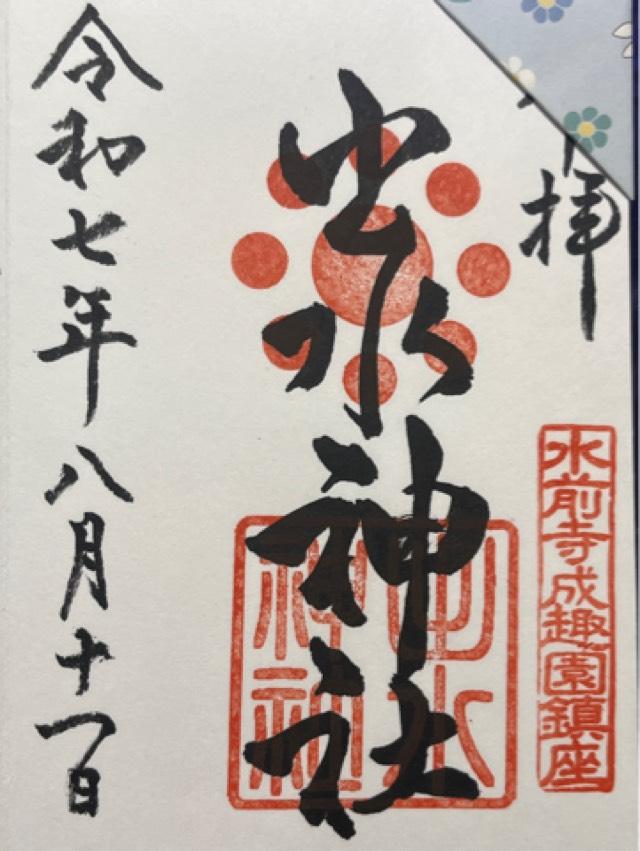 拝
水前寺成趣園鎮座
出水神社
出水神社
令和七年八月十一日